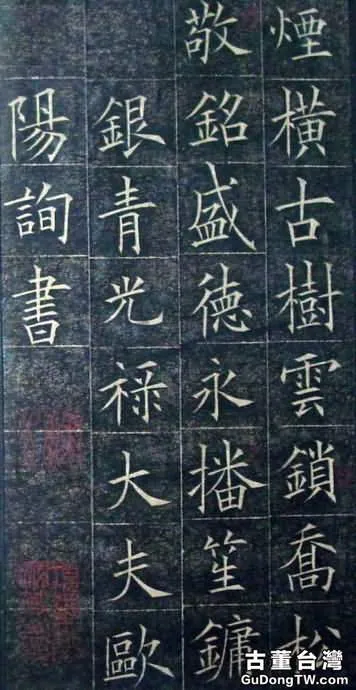 煙橫古樹雲鎖喬松
敬銘盛德永播笙鏞
銀青光祿大夫歐
陽詢書
古董台灣
GuDongTW.com